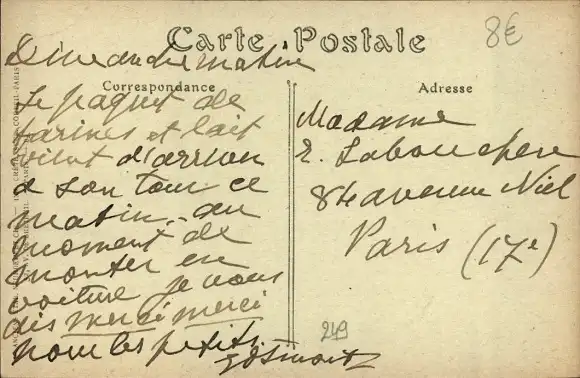 Carte Postale
8€
Dimanche matin
Correspondance
Adresse
Le paquet de
farines et lait
vient d'arriver
à son tour ce
matin. au
moment de
monter en
voiture je vous
dis merci merci
pour les petits.
Madame
E. Labouchère
84 avenue Niel
Paris (17e)
249